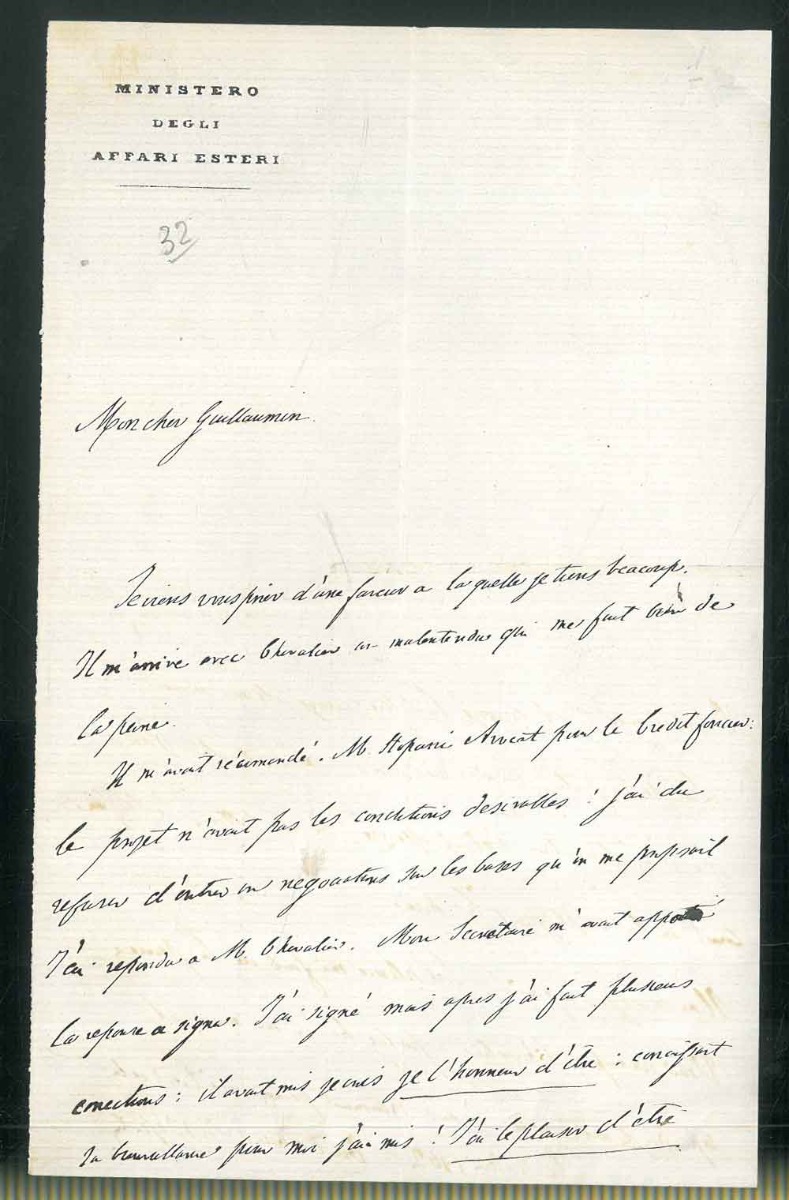 MINISTERO
DEGLI
AFFARI ESTERI
32
Mon cher Guillaumin.
Je viens vous prier d'une faveur a la quelle je tiens beacoup.
Il m'arrive avec Chevalier un malentendu qui me fait bien de
la peine.
Il m'avait récomandé. M. Avocat pour le Credit foncier:
le projet n'avait pas les conditions desirables: j'ai du
refuser d'entrer en negociations sur les bases qu'on me proposait
J'ai repondu a M. Chevalier. Mon Secretaire m'avait apporté
la reponse a signer. J'ai signé mais apres j'ai fait plusieurs
corrections: il avait mis je crois je l'honneur d'être: conaissant
sa bienveillance pour moi j'ai mis: J'ai le plaisir d'être